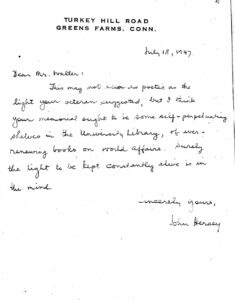 TURKEY HILL ROAD
GREENS FARMS, CONN.
July 18, 1947
Dear Mr. Walter:
This may not seem as poetic as the
light your veteran suggested, but I think
your memorial ought to be some self-perpetuating
shelves in the University Library, of ever-
renewing books on world affairs. Surely
the light to be kept constantly alive is in
the mind.
Sincerely yours,
John Hersey